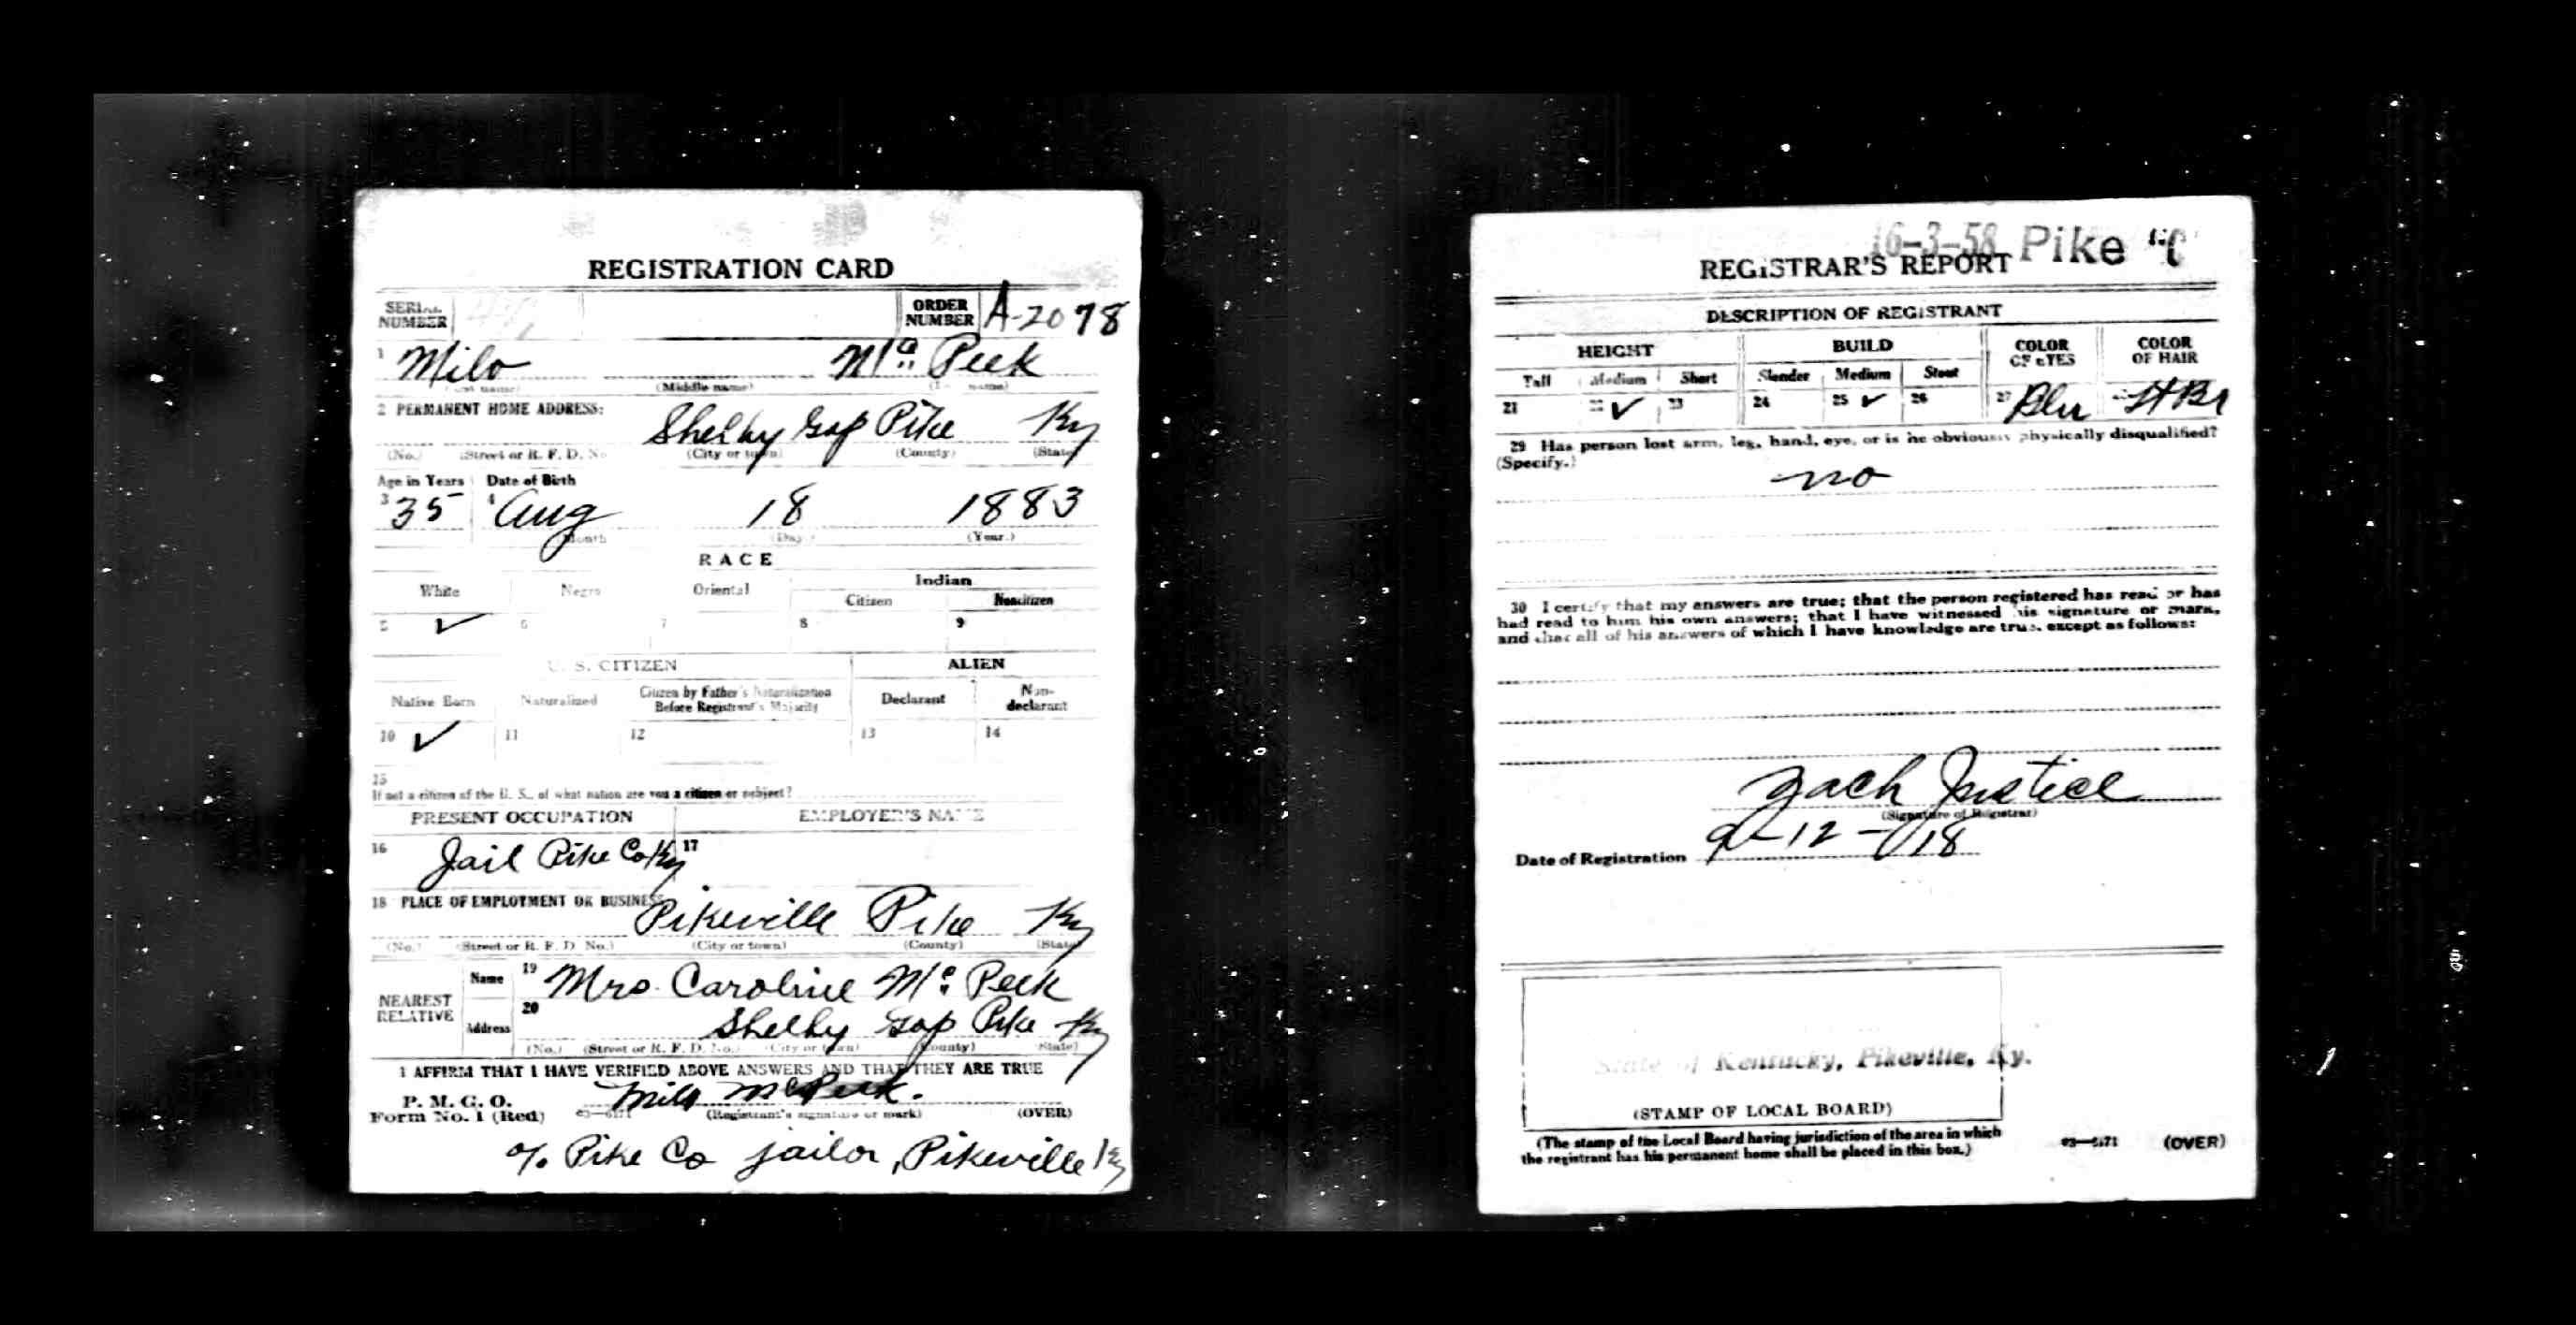 REGISTRATION CARD
SERIAL NUMBER
ORDER NUMBER A-2078
1 Milo Mc Peek
(Middle name)
2 PERMANENT HOME ADDRESS:
Shelby Gap Pike Ky
(No.) (Street or R. F. D. No (City or town) (County) (State)
Age in Years Date of Birth
3 35 4 Aug 18 1883
Month (Day.) (Year.)
RACE
White Negro Oriental Indian
Citizen Noncitizen
5 ✓ 6 7 8 9
U. S. CITIZEN ALIEN
Native Born Naturalized Citizen by Father's Naturalization Before Registrant's Majority Declarant Non-declarant
10 ✓ 11 12 13 14
15
If not a citizen of the U. S., of what nation are you a citizen or subject?
PRESENT OCCUPATION EMPLOYER'S NAME
16 Jail Pike Co Ky 17
18 PLACE OF EMPLOYMENT OR BUSINESS
Pikeville Pike Ky
(No.) (Street or R. F. D. No.) (City or town) (County) (State)
NEAREST RELATIVE
Name 19 Mrs Caroline Mc Peek
Address 20 Shelby Gap Pike Ky
(No.) (Street or R. F. D. No.) (City or town) (County) (State)
I AFFIRM THAT I HAVE VERIFIED ABOVE ANSWERS AND THAT THEY ARE TRUE
P. M. G. O.
Form No. 1 (Red) Milo McPeek.
(Registrant's signature or mark) (OVER)
% Pike Co jailor, Pikeville Ky
16-3-58 Pike
REGISTRAR'S REPORT
DESCRIPTION OF REGISTRANT
HEIGHT BUILD COLOR OF EYES COLOR OF HAIR
Tall Medium Short Slender Medium Stout
21 22 ✓ 23 24 25 ✓ 26 27 Blu
29 Has person lost arm, leg, hand, eye, or is he obviously physically disqualified?
(Specify.)
no
30 I certify that my answers are true; that the person registered has read or has
had read to him his own answers; that I have witnessed his signature or mark,
and that all of his answers of which I have knowledge are true, except as follows:
Zach Justice
(Signature of Registrar)
Date of Registration 9-12-18
State of Kentucky, Pikeville, Ky.
(STAMP OF LOCAL BOARD)
(The stamp of the Local Board having jurisdiction of the area in which
the registrant has his permanent home shall be placed in this box.)
03-6171 (OVER)